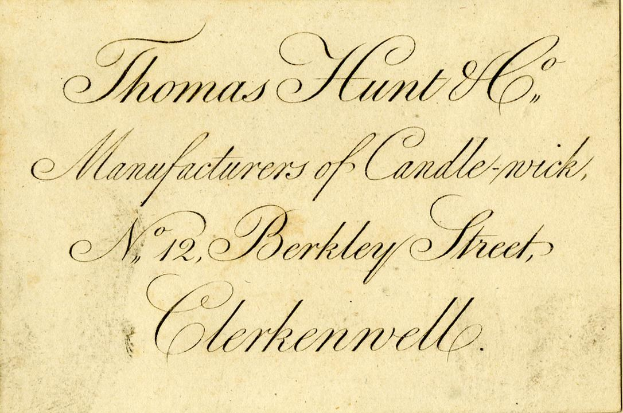 Thomas Hunt & Co.,
Manufacturers of Candle-wick,
No. 12, Berkley Street,
Clerkenwell.